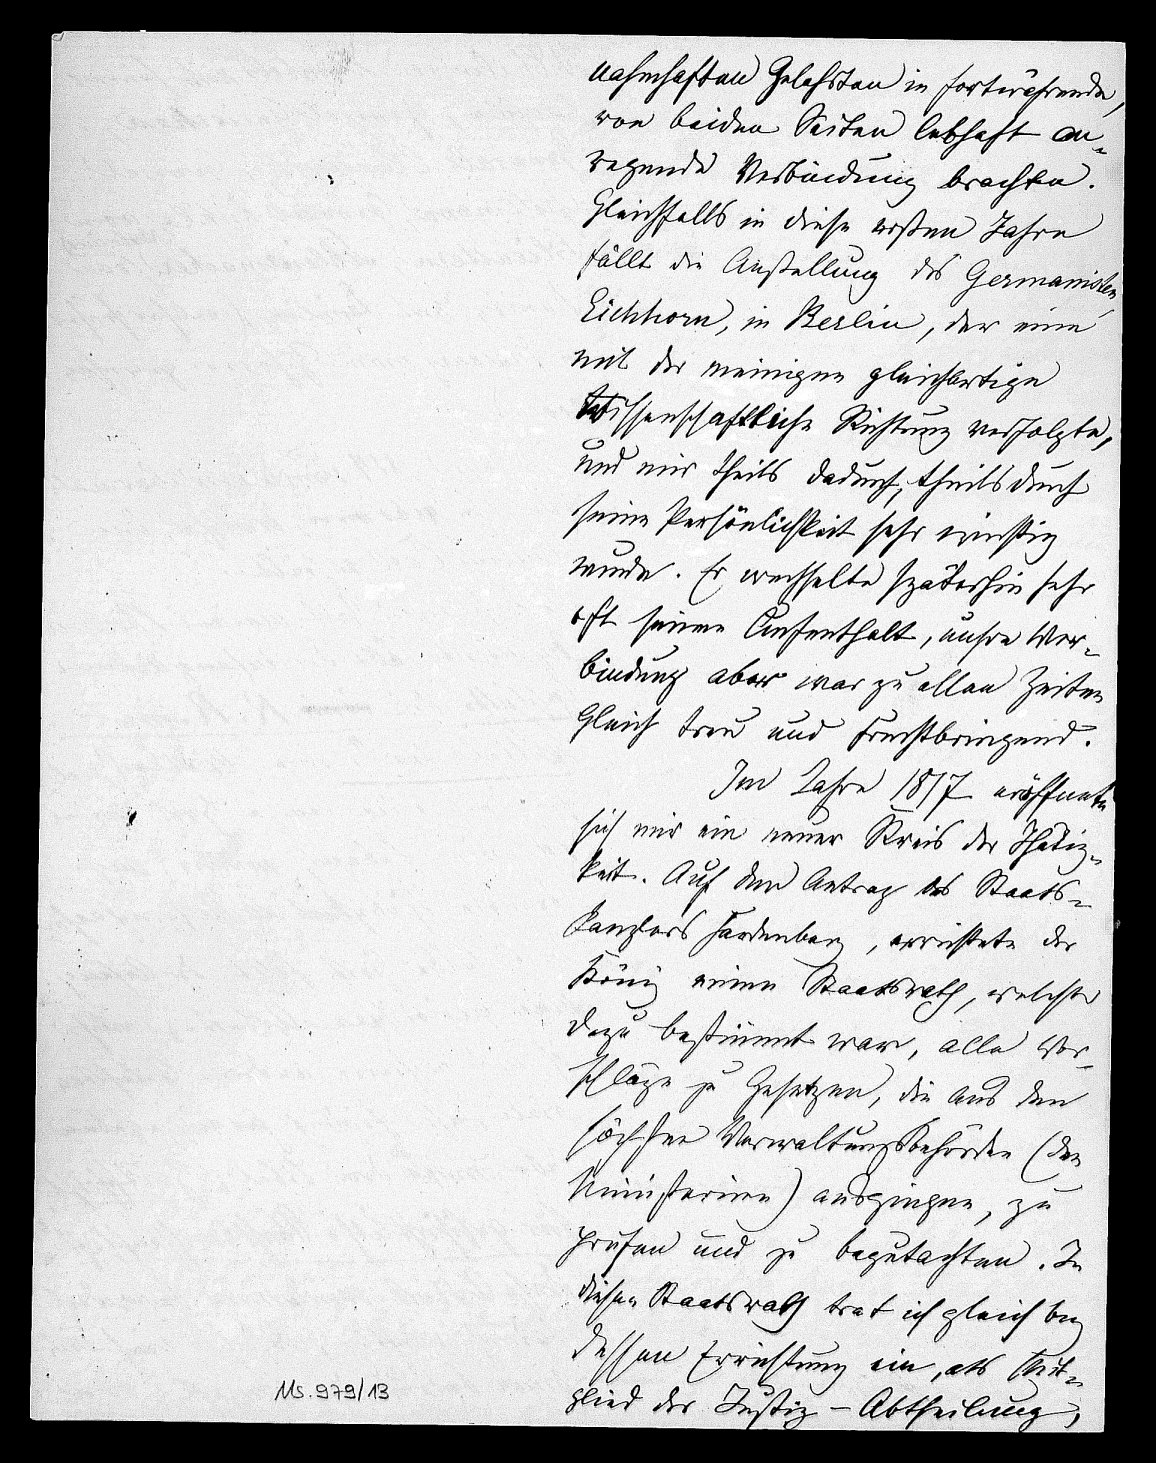 nahmhaften Gelehrten in fortwährende,
von beiden Seiten lebhaft an-
regende Verbindung brachte.
Gleichfalls in diese ersten Jahre
fällt die Anstellung des Germanisten
Eichhorn, in Berlin, der eine
mit der meinigen gleichartige
Wissenschaftliche Richtung verfolgte,
und mir theils dadurch, theils durch
seine Persönlichkeit sehr
wurde. Er wechselte späterhin sehr
oft seinen Aufenthalt, unsre Ver-
bindung aber war zu allen Zeiten
gleich treu und fruchtbringend.
Im Jahre 1817 eröffnete
sich mir ein neuer Kreis der Thätig-
keit. Auf den Antrag des Staats-
kanzlers Hardenberg, errichtete der
König einen Staatsrath, welcher
dazu bestimmt war, alle Vor-
schläge zu Gesetzen, die aus den
höchsten Verwaltungsbehörden (den
Ministerien) ausgingen, zu
prüfen und zu begutachten. In
diesen Staatsrath trat ich gleich bey
dessen Errichtung ein, als Mit-
glied der Justiz-Abtheilung,
Ms. 979/13